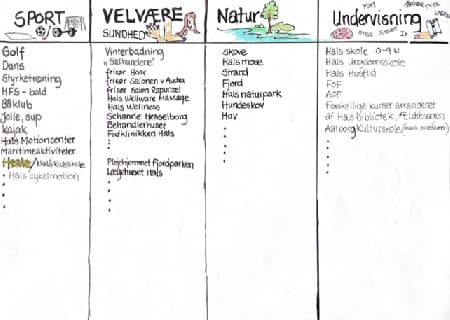 SPORT
Golf
Dans
Styrketræning
HFS - bold
Gåklub
Jolle, sup
Kajak
Hals Motioncenter
Maritimeaktiviteter
Heste/Hals Rideskole
• Hals cykelmotion
VELVÆRE
SUNDHED
Vinterbadning
"Sælhundene"
frisør Haar
frisør Salonen v/Aucha
frisør Salon Rapunzel
Hals Wellware Massage
Hals Wellness
Schanne Hesselborg
Behandlerhuset
Fodklinikken Hals
Plejehjemmet Fjordparken
Lægehuset Hals
Natur
Skove
Hals mose
Strand
Fjord
Hals naturpark
Hundeskov
Hav
Undervisning
Hals skole 0-9 kl
Hals Ungdomsskole
Hals Husflid
FOF
AOF
Forskellige kurser arrangeret
af Hals Bibliotek, Ældresagen
Aalborg Kulturskole